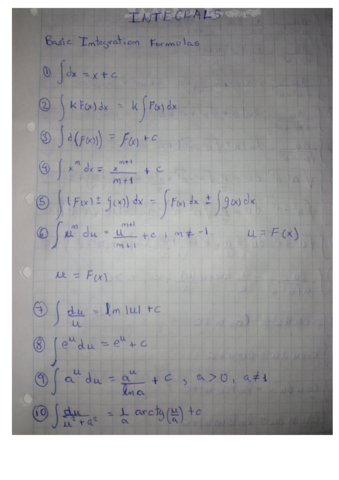 INTEGRALS
Basic Integration Formulas
① ∫dx = x + c
② ∫k F(x) dx = k ∫F(x) dx
③ ∫d(F(x)) = F(x) + c
④ ∫x^m dx = x^(m+1)/(m+1) + c
⑤ ∫(F(x) ± g(x)) dx = ∫F(x) dx ± ∫g(x) dx
⑥ ∫u^m du = u^(m+1)/(m+1) + c, m ≠ -1 u = F(x)
u = F(x)
⑦ ∫du/u = ln |u| + c
⑧ ∫e^u du = e^u + c
⑨ ∫a^u du = a^u/ln a + c, a > 0, a ≠ 1
⑩ ∫du/(u² + a²) = 1/a arctg(u/a) + c